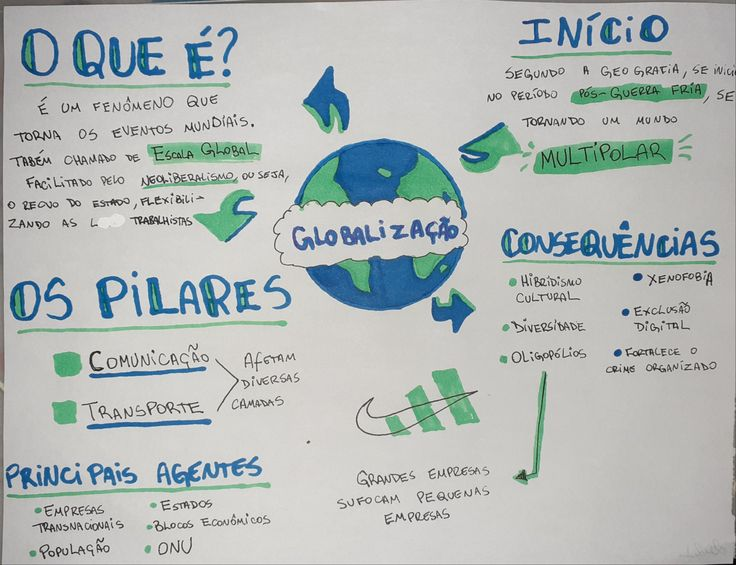 O QUE É?
É UM FENÔMENO QUE
TORNA OS EVENTOS MUNDIAIS.
TABÉM CHAMADO DE ESCALA GLOBAL
FACILITADO PELO NEOLIBERALISMO, OU SEJA,
O RECUO DO ESTADO, FLEXIBILI-
ZANDO AS TRABALHISTAS
INÍCIO
SEGUNDO A GEOGRAFIA, SE INICI
NO PERÍODO PÓS-GUERRA FRIA, SE
TORNANDO UM MUNDO
MULTIPOLAR
GLOBALIZAÇÃO
OS PILARES
COMUNICAÇÃO
TRANSPORTE
AFETAM
DIVERSAS
CAMADAS
CONSEQUÊNCIAS
HIBRIDISMO
CULTURAL
DIVERSIDADE
OLIGOPÓLIOS
XENOFOBIA
EXCLUSÃO
DIGITAL
FORTALECE O
CRIME ORGANIZADO
GRANDES EMPRESAS
SUFOCAM PEQUENAS
EMPRESAS
PRINCIPAIS AGENTES
EMPRESAS
TRANSNACIONAIS
POPULAÇÃO
ESTADOS
BLOCOS ECONÔMICOS
ONU